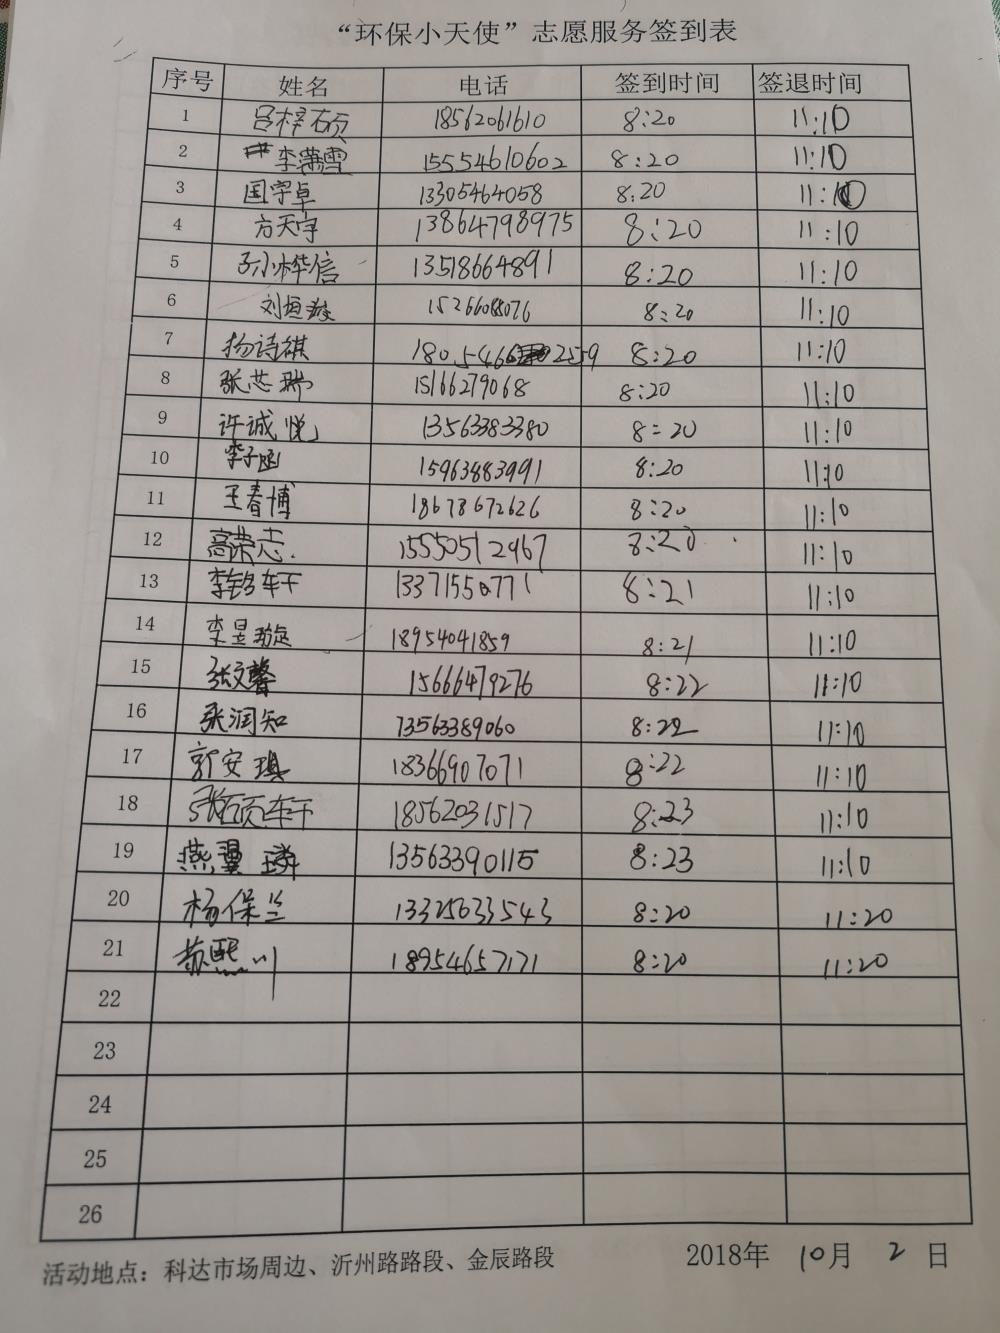 “环保小天使”志愿服务签到表
序号 姓名 电话 签到时间 签退时间
1 吕梓硕 18562061610 8:20 11:10
2 李潇雪 15554610602 8:20 11:10
3 国宇卓 13305464058 8:20 11:10
4 方天宇 13864798975 8:20 11:10
5 孙小桦信 13518664891 8:20 11:10
6 刘恒 15266088076 8:20 11:10
7 杨诗祺 1805466 2559 8:20 11:10
8 张芯瑞 15166279068 8:20 11:10
9 许诚悦 13563383380 8:20 11:10
10 李子函 15963883991 8:20 11:10
11 王春博 18678672626 8:20 11:10
12 高荣志 15550512967 8:20 11:10
13 李铭轩 13371550771 8:21 11:10
14 李昱璇 18954041859 8:21 11:10
15 张文馨 15666479276 8:22 11:10
16 张润知 13563389060 8:22 11:10
17 郭安琪 18366907071 8:22 11:10
18 张硕轩 18562031517 8:23 11:10
19 燕翼璘 13563390115 8:23 11:10
20 杨保兰 13325633543 8:20 11:20
21 苏熙川 18954657171 8:20 11:20
22
23
24
25
26
活动地点：科达市场周边、沂州路路段、金辰路段 2018年 10月 2 日